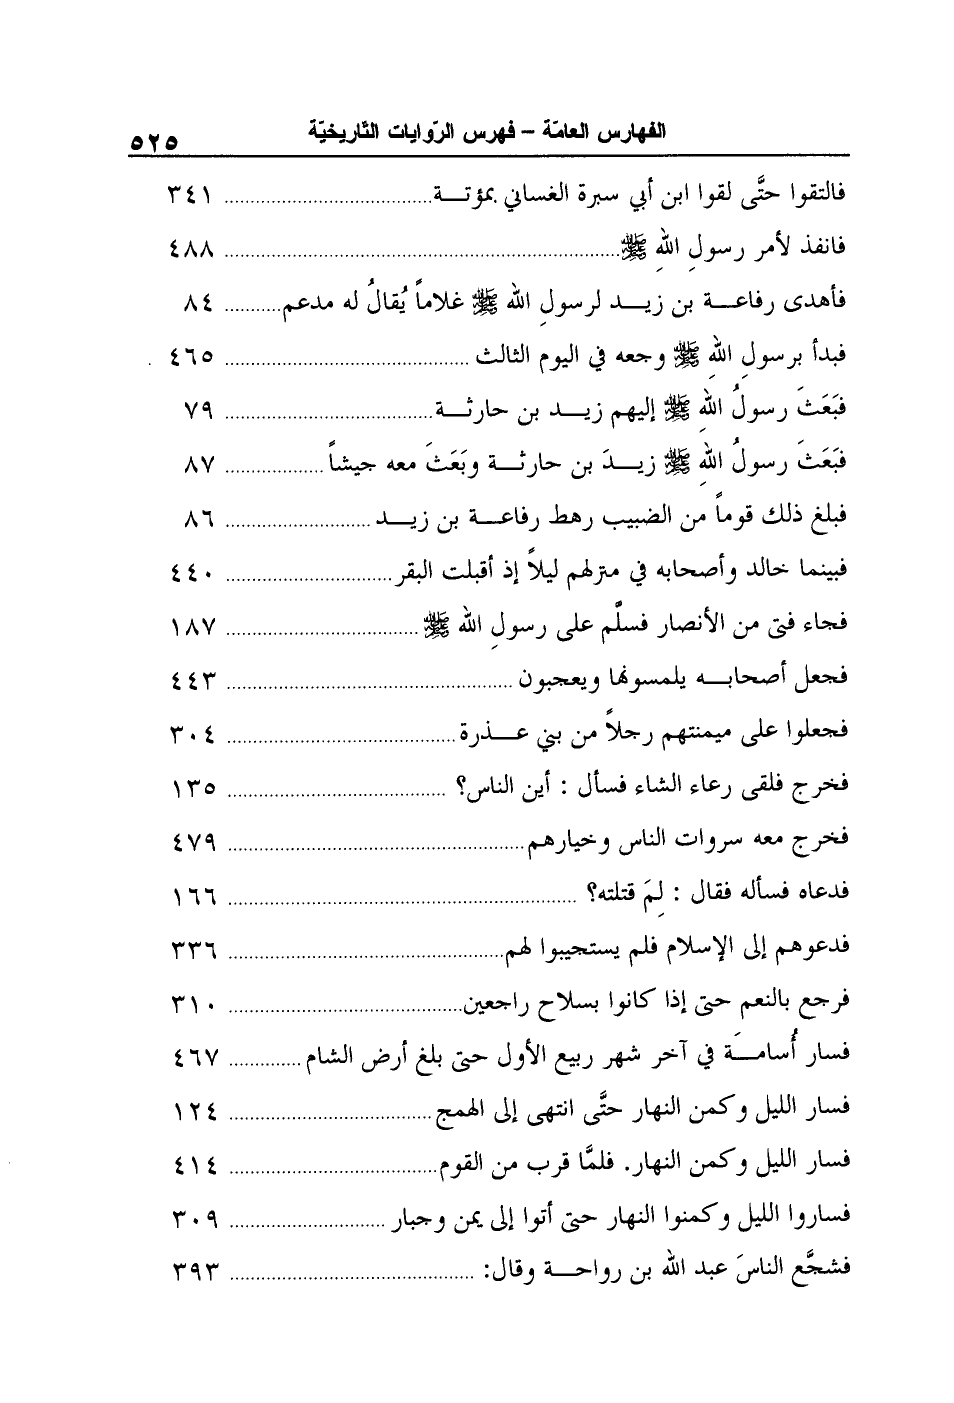 الفهارس العامّة – فهرس الرّوايات التّاريخيّة ٥٢٥
فالتقوا حتَّى لقوا ابن أبي سبرة الغساني بمؤتــة ........ ٣٤١
فانفذ لأمر رسولِ اللهِ ﷺ ........ ٤٨٨
فأهدى رفاعــة بن زيــد لرسولِ اللهُ ﷺ غلاماً يُقالُ له مدعم ........ ٨٤
فبدأ برسولِ اللهِ ﷺ وجعه في اليوم الثالث ........ ٤٦٥
فبَعَثَ رسولُ اللهِ ﷺ إليهم زيــد بن حارثــة ........ ٧٩
فبَعَثَ رسولُ اللهِ ﷺ زيــدَ بن حارثــة وبَعَثَ معه جيشاً ........ ٨٧
فبلغ ذلك قوماً من الضبيب رهط رفاعــة بن زيــد ........ ٨٦
فبينما خالد وأصحابه في منزلهم ليلاً إذ أقبلت البقر ........ ٤٤٠
فجاء فتى من الأنصار فسلَّم على رسولِ الله ﷺ ........ ١٨٧
فجعل أصحابــه يلمسونها ويعجبون ........ ٤٤٣
فجعلوا على ميمنتهم رجلاً من بني عــذرة ........ ٣٠٤
فخرج فلقى رعاء الشاء فسأل : أين الناس؟ ........ ١٣٥
فخرج معه سروات الناس وخيارهم ........ ٤٧٩
فدعاه فسأله فقال : لِمَ قتلته؟ ........ ١٦٦
فدعوهم إلى الإسلام فلم يستجيبوا لهم ........ ٣٣٦
فرجع بالنعم حتى إذا كانوا بسلاح راجعين ........ ٣١٠
فسار أُسامــَة في آخر شهر ربيع الأول حتى بلغ أرض الشام ........ ٤٦٧
فسار الليل وكمن النهار حتَّى انتهى إلى الهمج ........ ١٢٤
فسار الليل وكمن النهار. فلمَّا قرب من القوم ........ ٤١٤
فساروا الليل وكمنوا النهار حتى أتوا إلى يمن وجبار ........ ٣٠٩
فشجَّع الناسَ عبد الله بن رواحــة وقال: ........ ٣٩٣